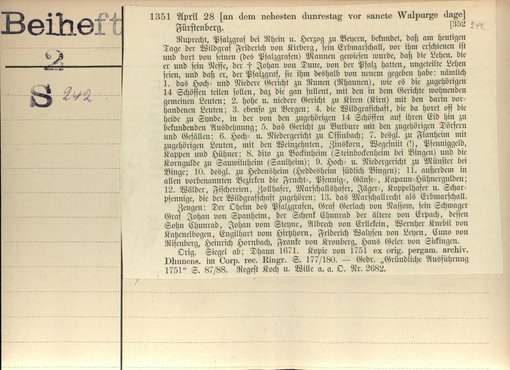 Beiheft
2
S 242
1351 April 28 [an dem nehesten dunrestag vor sancte Walpurge dage]
[352 242
Fürstenberg.
Ruprecht, Pfalzgraf bei Rhein u. Herzog zu Beyern, bekundet, daß am heutigen
Tage der Wildgraf Friderich von Kirberg, sein Erbmarschall, vor ihm erschienen ist
und dort von seinen (des Pfalzgrafen) Mannen gewiesen wurde, daß die Lehen, die
er und sein Neffe, der † Johan von Dune, von der Pfalz hatten, ungeteilte Lehen
seien, und daß er, der Pfalzgraf, sie ihm deshalb von neuem gegeben habe: nämlich
1. das Hoch- und Niedere Gericht zu Runen (Rhaunen), wie es die zugehörigen
14 Schöffen teilen sollen, daz die gan jullent, mit den in dem Gerichte wohnenden
gemeinen Leuten; 2. hohe u. niedere Gericht zu Kiren (Kirn) mit den darin vor-
handenen Leuten; 3. ebenso zu Bergen; 4. die Wildgrafschaft, die da horet off die
heide zu Synde, in der von den zugehörigen 14 Schöffen auf ihren Eid hin zu
bekundenden Ausdehnung; 5. das Gericht zu Butbure mit den zugehörigen Dörfern
und Gefällen; 6. Hoch- u. Niedergericht zu Offinbach; 7. desgl. zu Flanheim mit
zugehörigen Leuten, mit den Weinzehnten, Zinskorn, Wegesniit (!), Pfenniggeld,
Kappen und Hühner; 8. bitz zu Bokinheim (Steinbockenheim bei Bingen) und die
Korngulde zu Sauwilnheim (Saulheim); 9. Hoch- u. Niedergericht zu Münster bei
Binge; 10. desgl. zu Hedensheim (Heddesheim südlich Bingen); 11. außerdem in
allen vorbenannten Bizirken die Frucht-, Pfennig-, Gänse-, Kapaun-Hühnergulden;
12. Wälder, Fischereien, Zollhafer, Marschallshafer, Jäger-, Koppelhafer u. Schar-
pfennige, die der Wildgrafschaft zugehören; 13. das Marschallrecht als Erbmarschall.
Zeugen: Der Oheim des Pfalzgrafen, Graf Gerlach von Nassow, sein Schwager
Graf Johan von Spanheim, der Schenk Chunrad der ältere von Erpach, dessen
Sohn Chunrad, Johan vom Steyne, Albrech von Erllekein, Wernher Knebil von
Katzenelbogen, Engilhart vom Hirtzhorn, Friderich Walhsen von Leyen, Cuno von
Rifenberg, Heinrich Hornbach, Franke von Kronberg, Hans Geler von Sickingen.
Orig. Siegel ab; Dhaun 1671. Kopie von 1751 ex orig. pergam. archiv.
Dhunens. im Corp. rec. Ringr. S. 177/180. — Gedr. „Gründliche Ausführung
1751“ S. 87/88. Regest Koch u. Wille a. a. O. Nr. 2682.